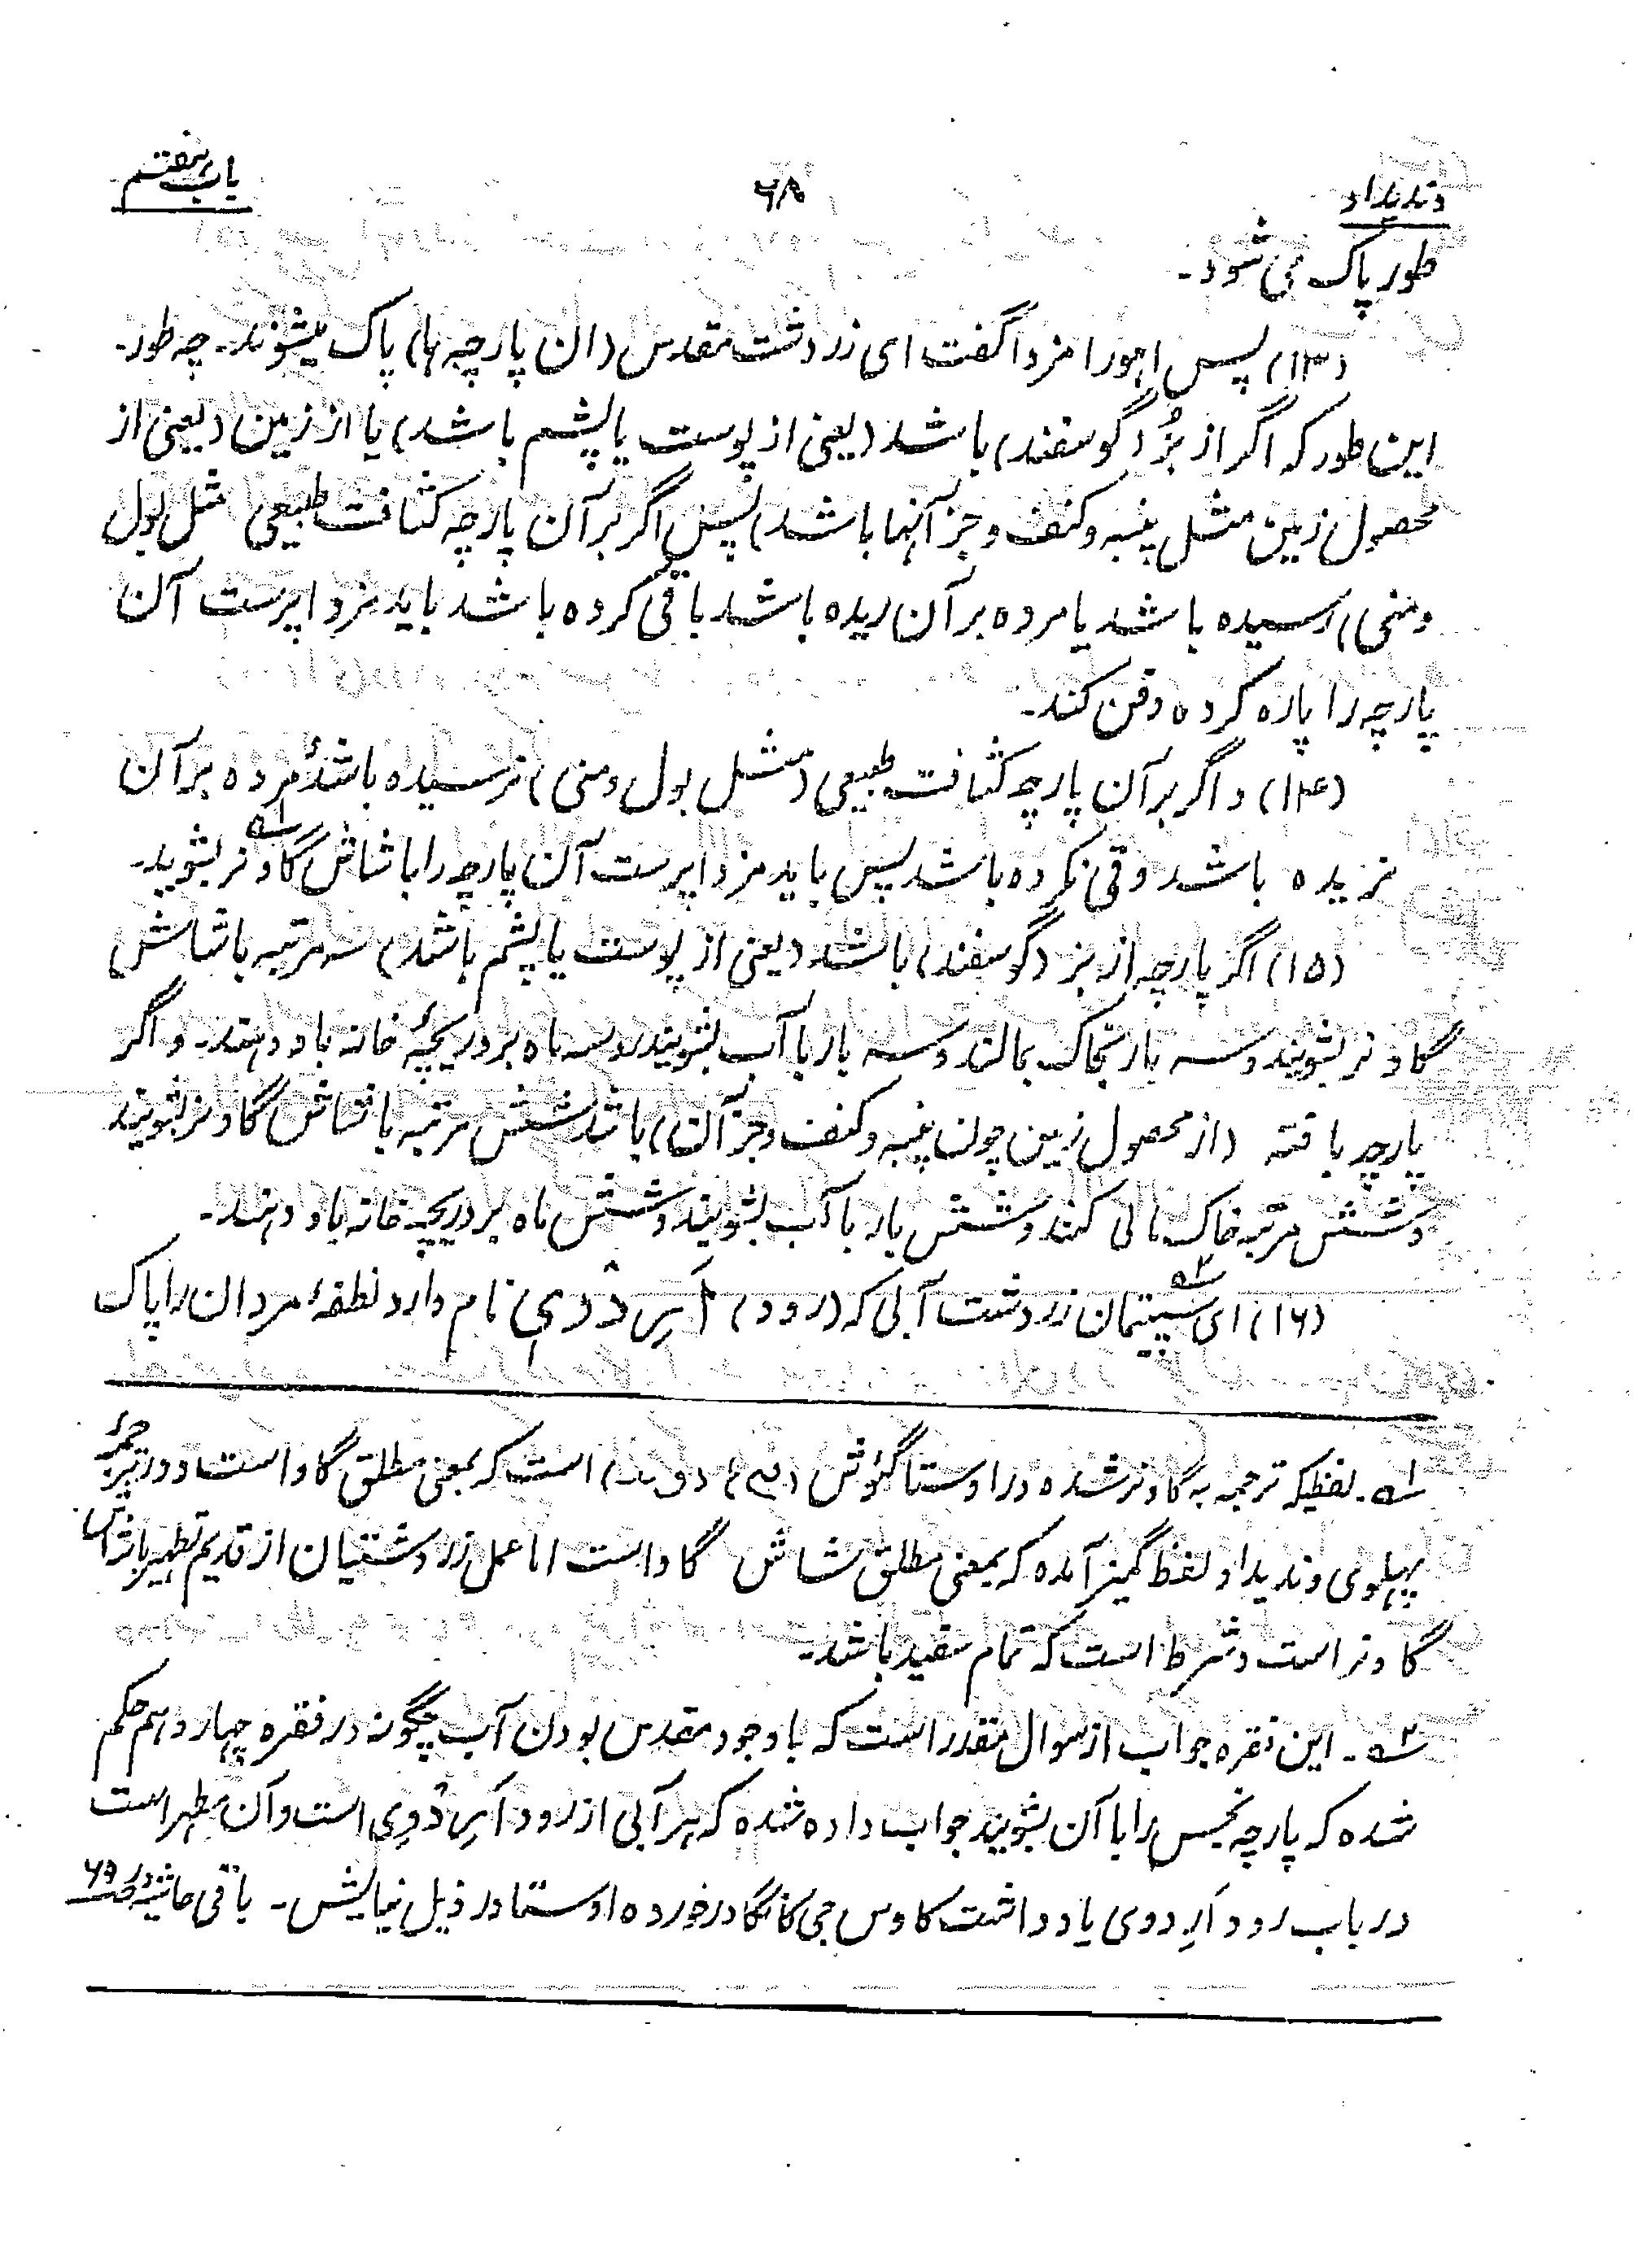 وندیداد ۶۸ باب هفتم
طور پاک می شود۔
(۱۳) پس اهورا مزدا گفت ای زردشت مقدس (ان پارچه ها) پاک میشوند۔ چه طور۔
این طور که اگر از بُز (گوسفند) باشد (یعنی از پوست یا پشم باشد) یا از زمین (یعنی از
محصول زمین مثل پنبه و کنف و جز آنها باشد) پس اگر بر آن پارچه کثافت طبیعی (مثل بول
ومنی) رسیده باشد یا مرده بر آن ریده باشد یا قی کرده باشد باید مزدا پرست آن
پارچه را پاره کرده دفن کند۔
(۱۴) و اگر بر آن پارچه کثافت طبیعی (مثل بول و منی) نرسیده باشد مرده بر آن
نریده باشد و قی نکرده باشد پس باید مزدا پرست آن پارچه را با شاش گاو نر۱ بشوید۔
(۱۵) اگر پارچه از بز (گوسفند) باشد (یعنی از پوست یا پشم باشد) سه مرتبه با شاش
گاو نر بشویند و سه بار بخاک بمالند و سه بار با آب بشویند و سه ماه بر دریچهٔ خانه باد دهند۔ و اگر
پارچه بافته (از محصول زمین چون پنبه و کنف و جز آن) باشد شش مرتبه با شاش گاو نر بشویند
و شش مرتبه خاک مالی کنند و شش بار با آب بشویند و شش ماه بر دریچه خانه باد دهند۔
(۱۶) ای سپیتمان۲ زردشت آبی که (رود) اَرِدْوی نام دارد نطفهٔ مردان را پاک
۱۔ لفظیکه ترجمه به گاو نر شده در اوستا گئوش است که بمعنی مطلق گاو است و در ترجمهٔ
پهلوی وندیداد لفظ گمیز آمده که بمعنی مطلق شاش گاو است اما عمل زردشتیان از قدیم تطهیر با شاش
گاو نر است و شرط است که تمام سفید باشد۔
۲۔ این فقره جواب از سوال مقدر است که با وجود مقدس بودن آب چگونه در فقره چهاردهم حکم
شده که پارچه نجس را با آن بشویند جواب داده شده که هر آبی از رود اَرِدْوِی است و آن مطهر است
در باب رود اَرِدوی یادداشت کاوس جی کانگا در خورده اوستا در ذیل نیایش۔ باقی حاشیه در ص ۶۹